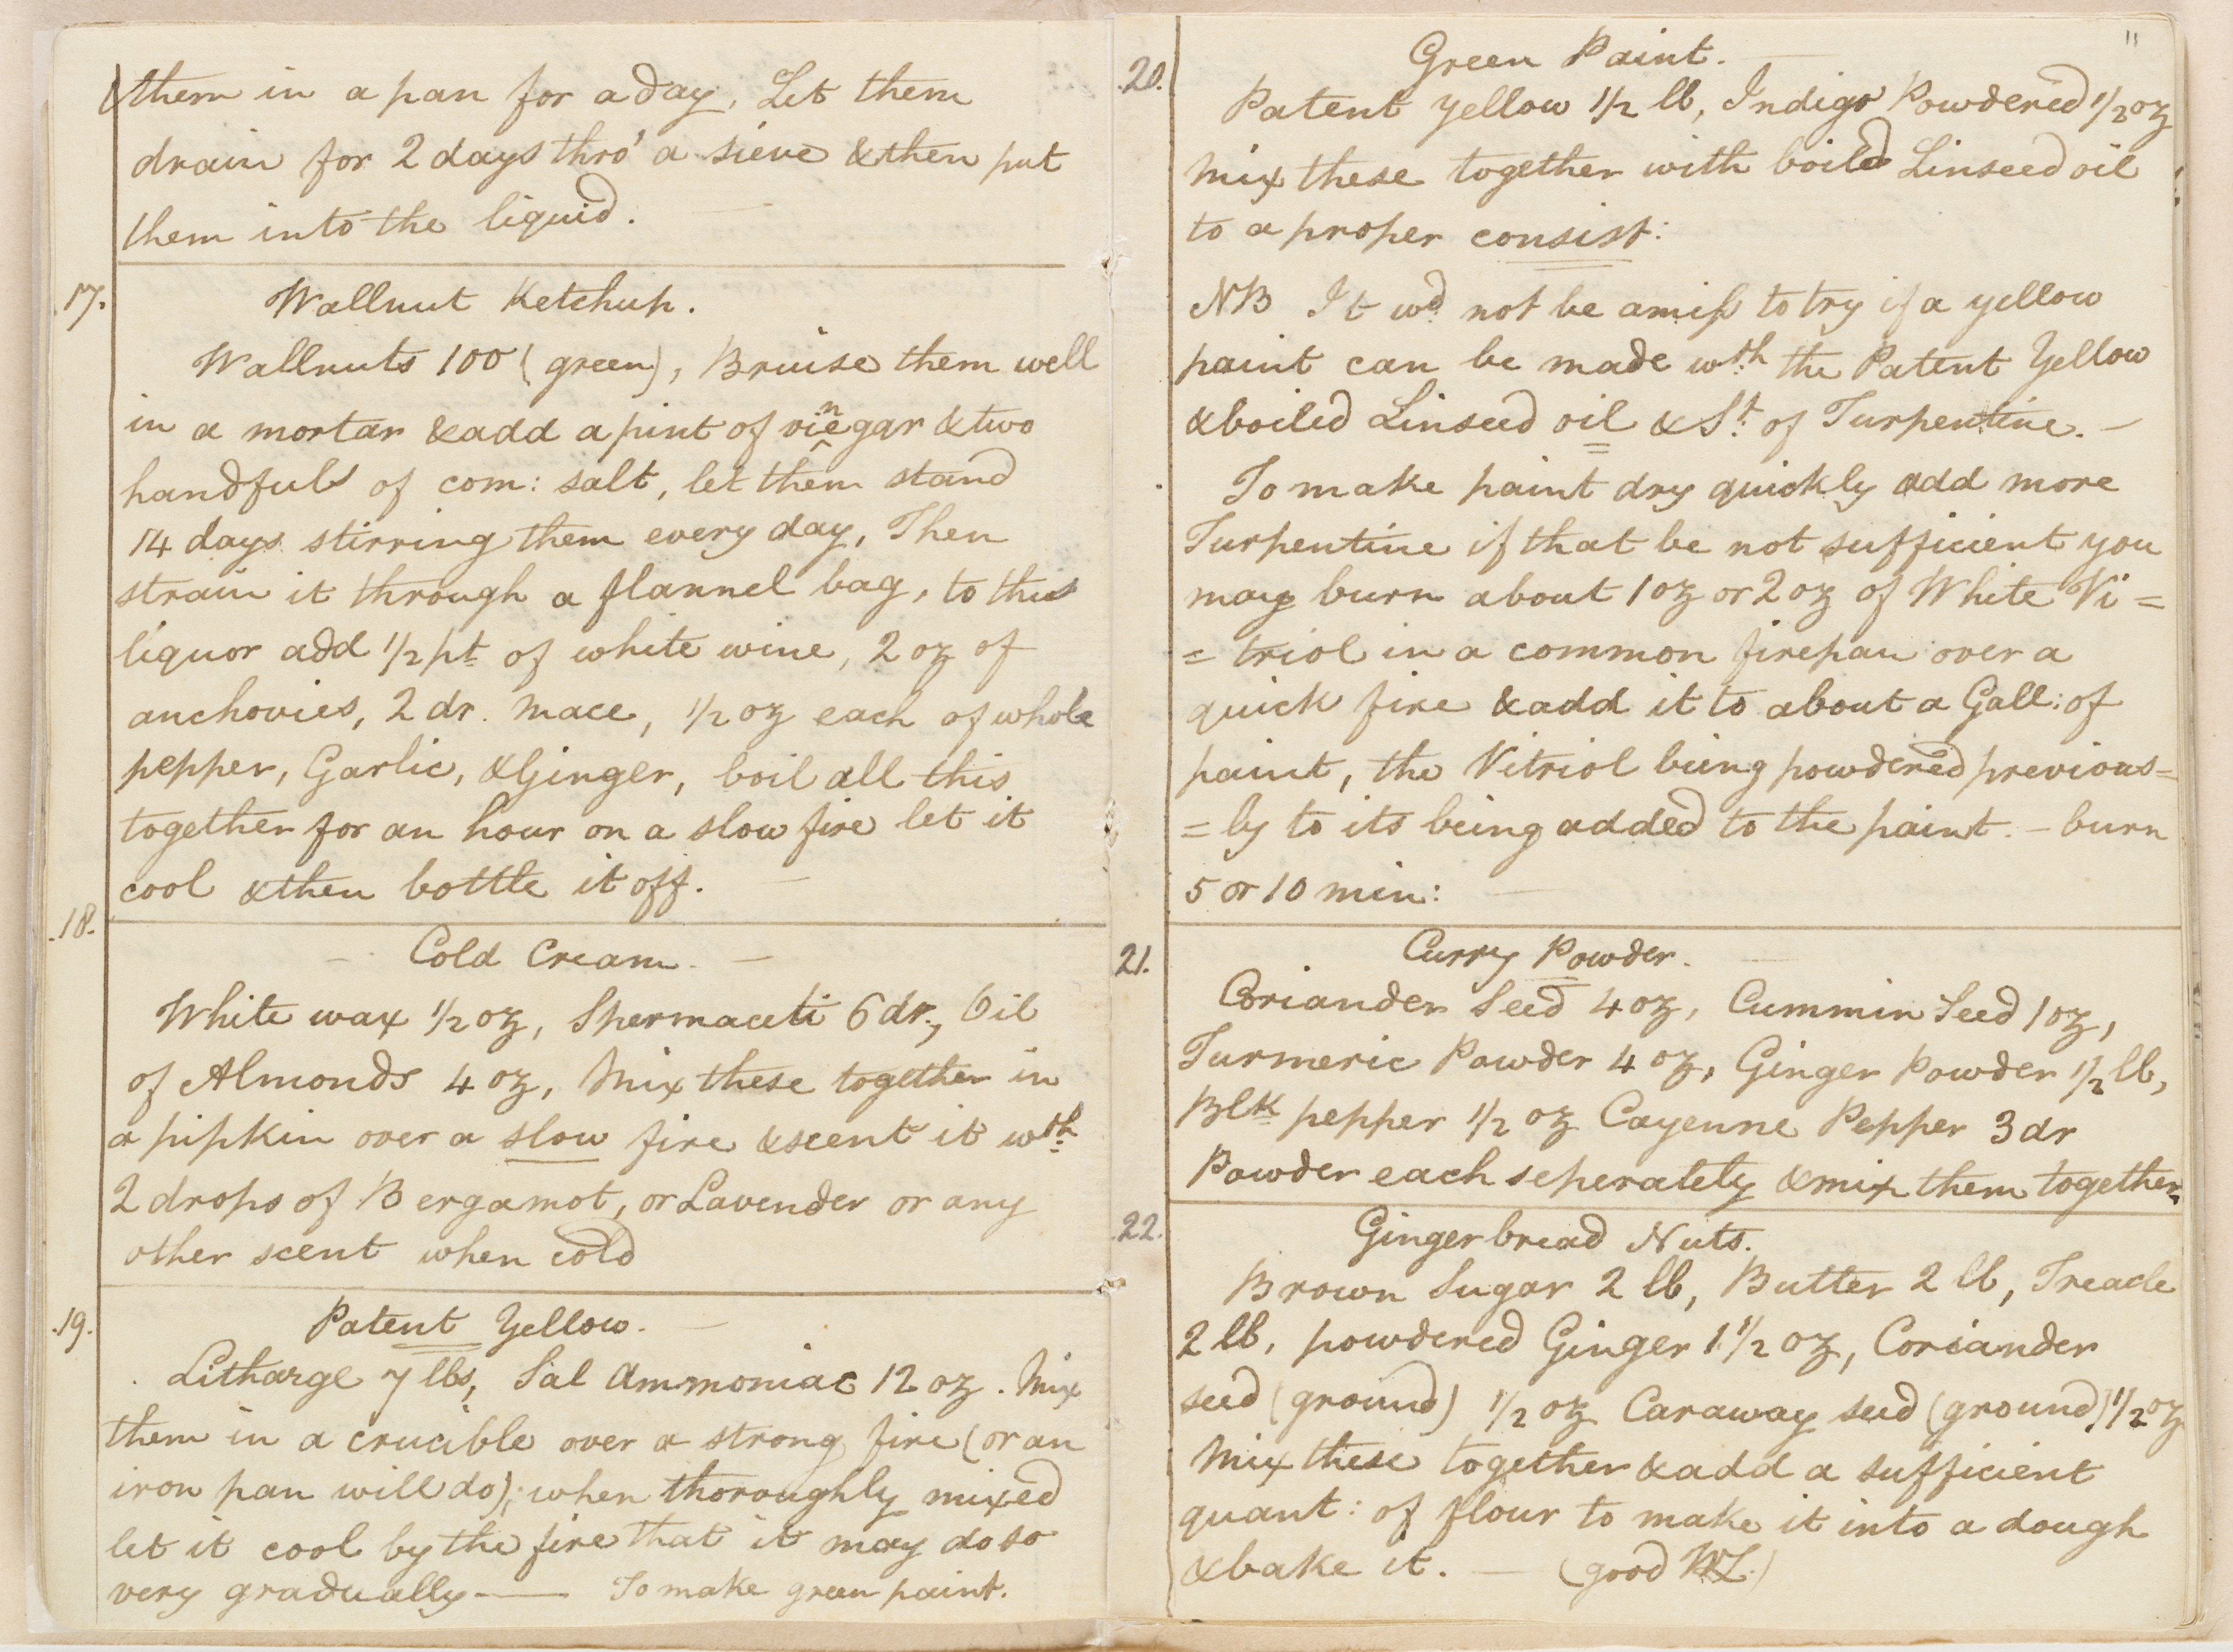 them in a pan for a day, Let them
drain for 2 days thro' a sieve & then put
them into the liquid.
17.
Wallnut Ketchup.
Wallnuts 100 (green), Bruise them well
in a mortar & add a pint of vinegar & two
handfuls of com: salt, let them stand
14 days stirring them every day, Then
strain it through a flannel bag, to this
liquor add 1/2 pt of white wine, 2 oz of
anchovies, 2 dr. Mace, 1/2 oz each of whole
pepper, Garlic, & Ginger, boil all this
together for an hour on a slow fire let it
cool & then bottle it off.
18.
Cold Cream.
White wax 1/2 oz, Spermaceti 6 dr., Oil
of Almonds 4 oz, Mix these together in
a pipkin over a slow fire & scent it wth
2 drops of Bergamot, or Lavender or any
other scent when cold
19.
Patent Yellow.
Litharge 7 lbs, Sal Ammoniac 12 oz. Mix
them in a crucible over a strong fire (or an
iron pan will do); when thoroughly mixed
let it cool by the fire that it may do so
very gradually — To make green paint.
11
20.
Green Paint.
Patent Yellow 1/2 lb, Indigo Powdered 1/2 oz
Mix these together with boiled Linseed oil
to a proper consist:
NB It wd not be amiss to try if a yellow
paint can be made wth the Patent Yellow
& boiled Linseed oil & St. of Turpentine. —
To make paint dry quickly add more
Turpentine if that be not sufficient you
may burn about 1 oz or 2 oz of White Vi=
=triol in a common firepan over a
quick fire & add it to about a Gall: of
paint, the Vitriol being powdered previous=
=ly to its being added to the paint. – burn
5 or 10 min:
21.
Curry Powder.
Coriander Seed 4 oz, Cummin Seed 1 oz,
Turmeric Powder 4 oz, Ginger Powder 1/2 lb,
Blk pepper 1/2 oz Cayenne Pepper 3 dr
Powder each seperately & mix them together
22.
Gingerbread Nuts.
Brown Sugar 2 lb, Butter 2 lb, Treacle
2 lb, powdered Ginger 1 1/2 oz, Coriander
seed (ground) 1/2 oz Caraway seed (ground) 1/2 oz
Mix these together & add a sufficient
quant: of flour to make it into a dough
& bake it. — (good